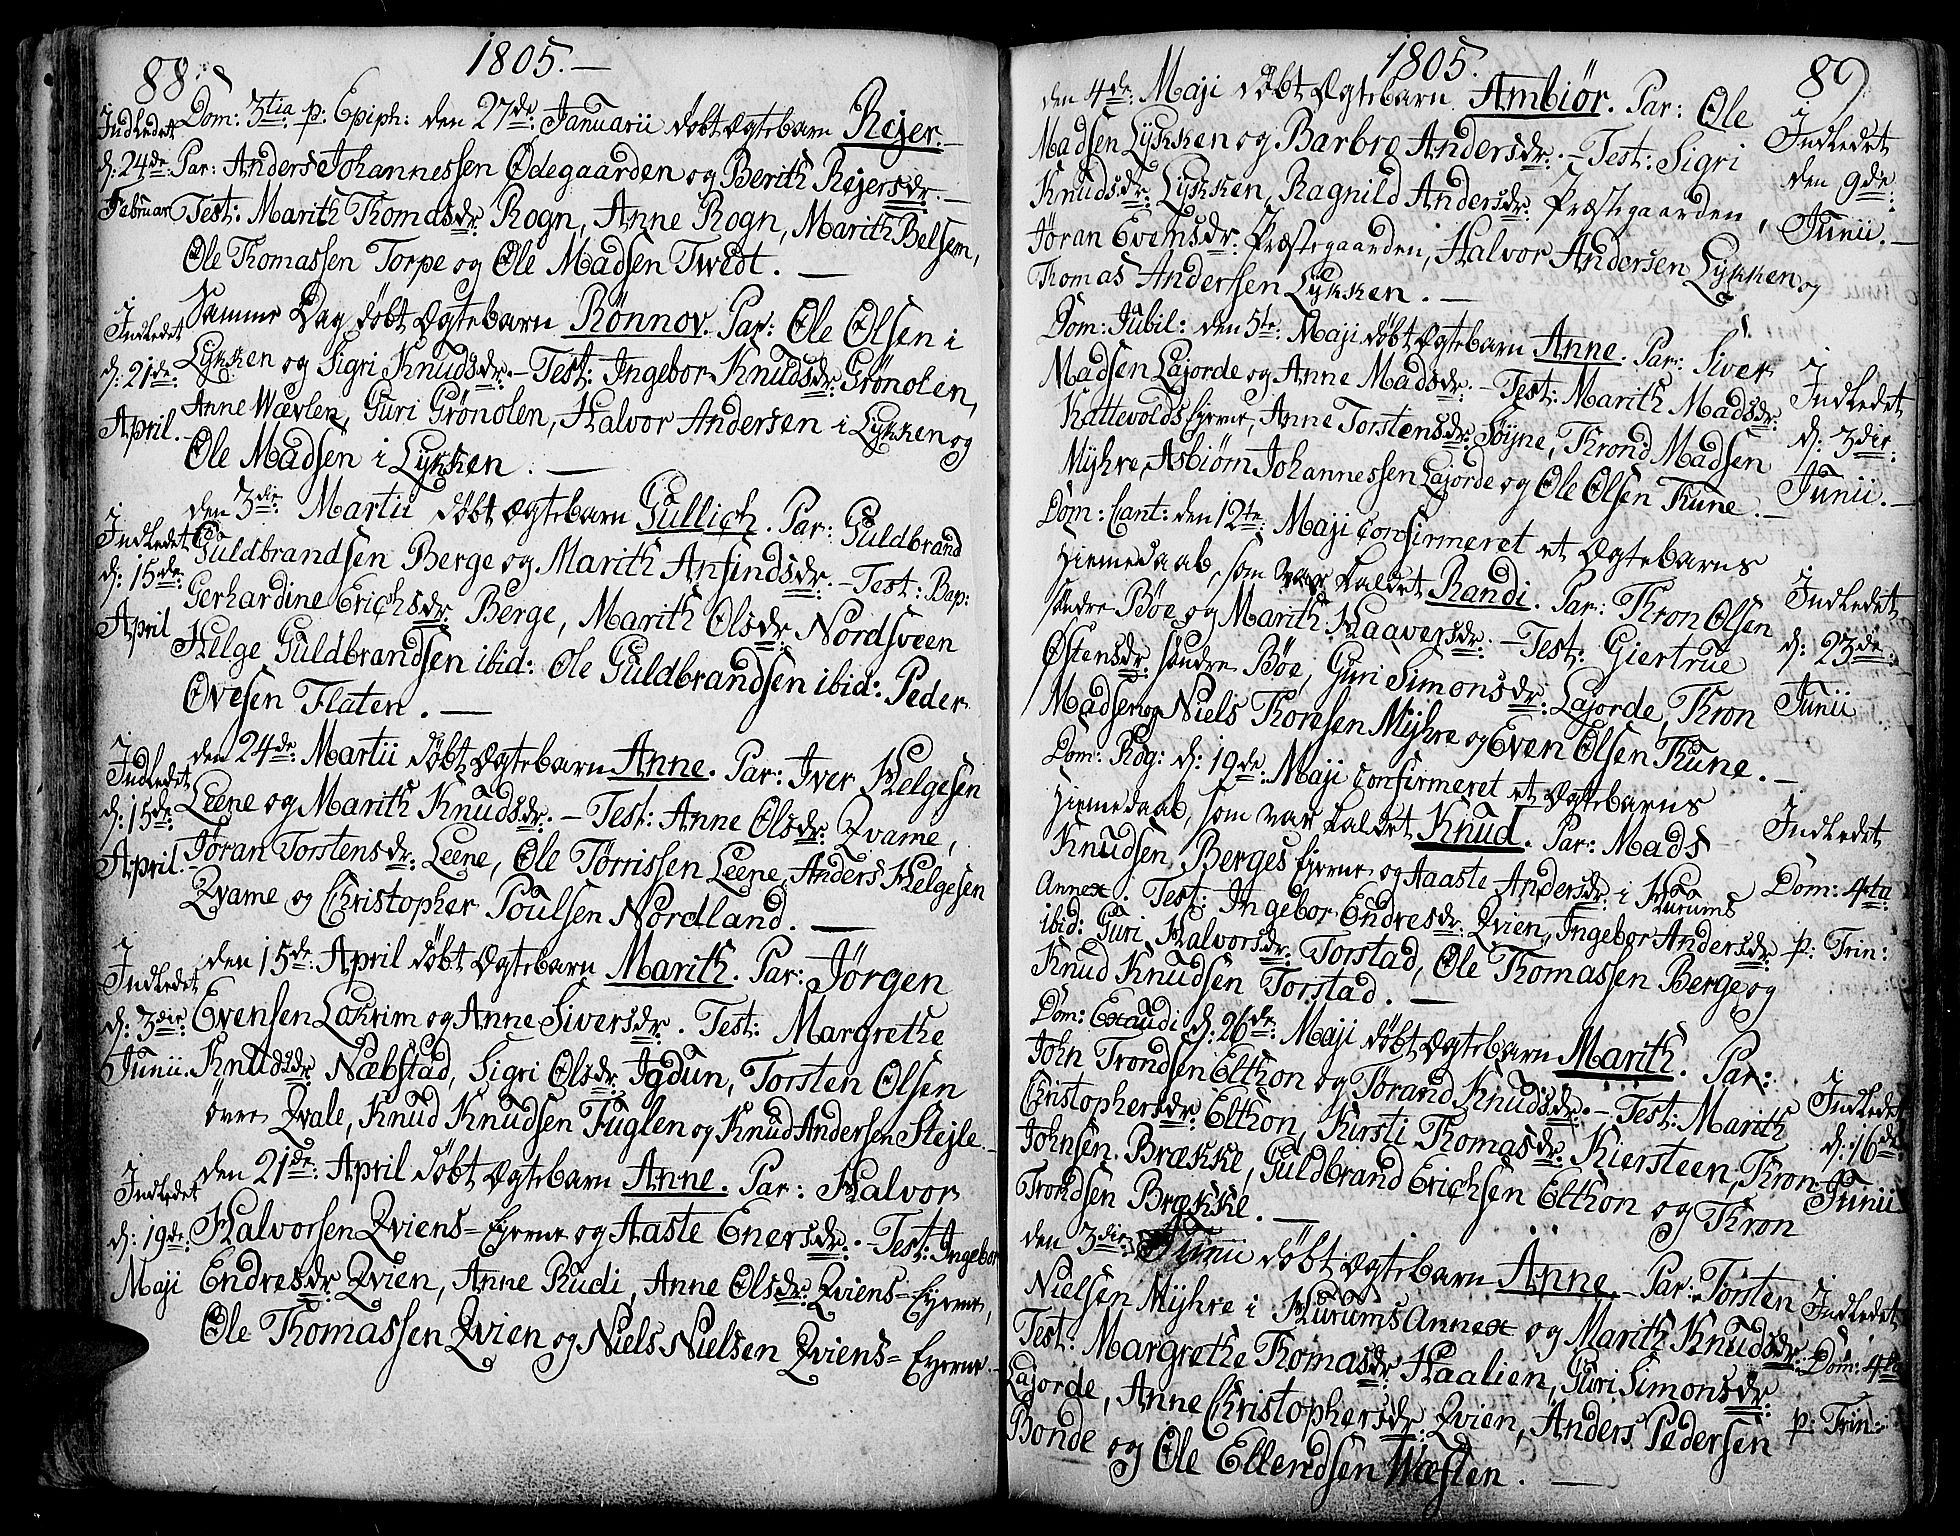 88. 1805.
Indledet
d: 24de
Februar
Dom: 3tia p: Epiph: den 27de Januarii døbt Ægtebarn Rejer.
Par: Anders Johannessen Ødegaarden og Berith Rejersdr.
Test: Marith Thomasdr. Rogn, Anne Rogn, Marith Belsem,
Ole Thomassen Torpe og Ole Madsen Twedt.
Indledet
d: 21de
April.
Samme Dag døbt Ægtebarn Rönnov. Par: Ole Olsen i
Lykken og Sigri Knudsdr. Test: Ingebor Knudsdr: Grönolen,
Anne Wævlen, Guri Grönolen, Halvor Andersen i Lykken og
Ole Madsen i Lykken.
Indledet
d: 15de
April
den 3die Martii døbt Ægtebarn Gullich. Par: Guldbrand
Guldbrandsen Berge og Marith Anfindsdr. Test: Bap:
Gerhardine Erichsdr. Berge, Marith Olsdr. Nordsveen
Helge Guldbrandsen ibid: Ole Guldbrandsen ibid: Peder
Ovesen Flaten.
Indledet
d: 15de
April.
den 24de Martii døbt Ægtebarn Anne. Par: Iver Helgesen
Leene og Marith Knudsdr. Test: Anne Olsdr: Qvame,
Jöran Torstensdr: Leene, Ole Tørrissen Leene, Anders Helgesen
Qvame og Christopher Poulsen Nordland.
Indledet
d: 3die
Junii.
den 15de April døbt Ægtebarn Marith. Par: Jörgen
Evensen Lakrim og Anne Siversdr. Test: Margrethe
Knudsdr: Næbstad, Sigri Olsdr. Igdun, Torsten Olsen
øvre Qvale, Knud Knudsen Fuglen og Knud Andersen Stejle.
Indledet
d: 19de
Maji
den 21de April døbt Ægtebarn Anne. Par: Halvor
Halvorsen Qviens=Ejerne og Aaste Enersdr. Test: Ingebor
Endresdr Qvien, Anne Rudi, Anne Olsdr: Qviens=Ejerne,
Ole Thomassen Qvien og Niels Nielsen Qviens=Ejerne.
1805. 89
den 4de Maji døbt Ægtebarn Ambiör. Par: Ole
Madsen Lykken og Barbro Andersdr. Test: Sigri
Knudsdr: Lykken, Ragnild Andersdr: Præstegaarden,
Jøran Evensdr: Præstegaarden, Halvor Andersen Lykken og
Thomas Andersen Lykken.
Indledet
den 9de
Junii.
Dom: Jubil: den 5te Maji døbt Ægtebarn Anne. Par: Siver
Madsen Lajorde og Anne Madsdr. Test: Marith Madsdr:
Kattevolds Ejerne, Anne Torstensdr: Søyne, Thrond Madsen
Myhre, Asbiørn Johannessen Lajorde og Ole Olsen Thune.
Indledet
d: 3die
Junii.
Dom: Cant: den 12te Maji confirmeret et Ægtebarns
Hiemedaab, som var kaldet Randi. Par: Thron Olsen
søndre Bøe og Marith Haaversdr. Test: Giertrue
Østensdr. søndre Bøe, Guri Simonsdr: Lajorde, Thron
Madsen og Niels Thoresen Myhre og Even Olsen Thune.
Indledet
d: 23de
Junii
Dom: Rog: d: 19de Maji confirmeret et Ægtebarns
Hiemedaab, som var kaldet Knud. Par: Mads
Knudsen Berges Ejerne og Aaste Andersdr: i Hurums
Annex. Test: Ingebor Endresdr: Qvien, Ingebor Andersdr:
ibid: Guri Halvorsdr: Torstad, Ole Thomassen Berge og
Knud Knudsen Torstad.
Indledet
Dom: 4ta
p: Trin:
Dom: Exaudi d: 26de Maji døbt Ægtebarn Marith. Par:
John Trondsen Elthon og Torand Knudsdr. Test: Marith
Christophersdr: Elthon, Kirsti Thomasdr: Kiersteen, Thron
Johnsen Brække, Guldbrand Erichsen Elthon og Thron
Trondsen Brække.
Indledet
d: 16de
Junii
den 3die Junii døbt Ægtebarn Anne. Par: Torsten
Nielsen Myhre i Hurums Annex og Marith Knudsdr:
Test: Margrethe Thomasdr: Haalien, Guri Simonsdr:
Lajorde, Anne Christophersdr: Qvien, Anders Pedersen
Bonde og Ole Ellendsen Wæflen.
Indledet
Dom: 4ta
p: Trin: